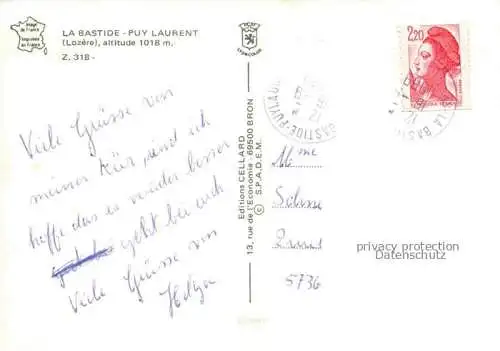 Image
de France
Imprimée
en France
LA BASTIDE - PUY LAURENT
(Lozère), altitude 1018 m.
Z. 318 -
Viele Grüsse von
meiner Kur, und ich
hoffe das es wieder besser
geht bei euch
Viele Grüsse von
Helga
Editions CELLARD
13, rue de l'Economie - 69500 BRON
© S.P.A.D.E.M.
2,20
LA BASTIDE-PUY LAU
LA BAST
Mme
5736
privacy protection
Datenschutz